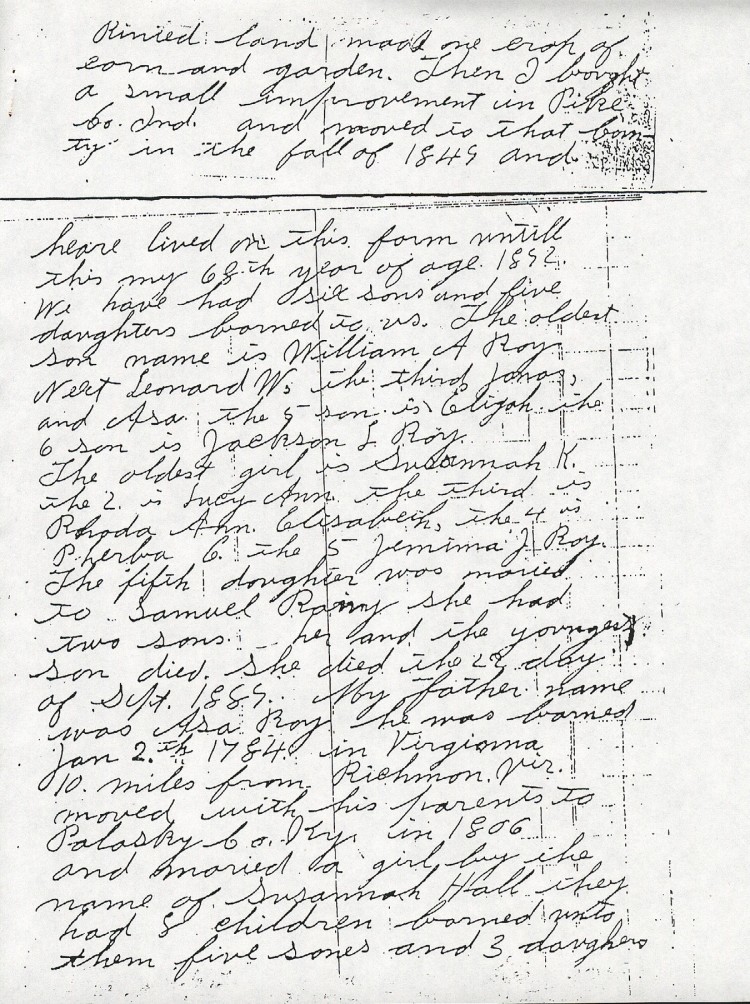 Rinted land mad one crop of
corn and garden. Then I bought
a small improvement in Pike
Co. Ind. and moved to that Coun-
ty in the fall of 1849 and
heare lived on this farm untill
this my 68th year of age 1892.
We have had six sons and five
daughters borned to us. The oldest
son name is William A Roy
Next Leonard W. the third Jonas,
and Asa. the 5 son is Elijah the
6 son is Jackson L Roy.
The oldest girl is Susannah K.
the 2. is Lucy Ann. the third is
Rhoda Ann. Elisabeth, the 4 is
Pherba C. the 5 Jemima J Roy.
The fifth doughter was maried
to Samuel she had
two sons. her and the youngest
son died. She died the day
of Sept. 1889. My father name
was Asa Roy he was borned
Jan 2.th 1784 in Virginna
10. miles from Richmon. Vir.
moved with his parents to
Palasky Co. Ky. in 1806
and maried a girl by the
name of Susannah Hall they
had 8 children borned unto
them five sones and 3 daughers